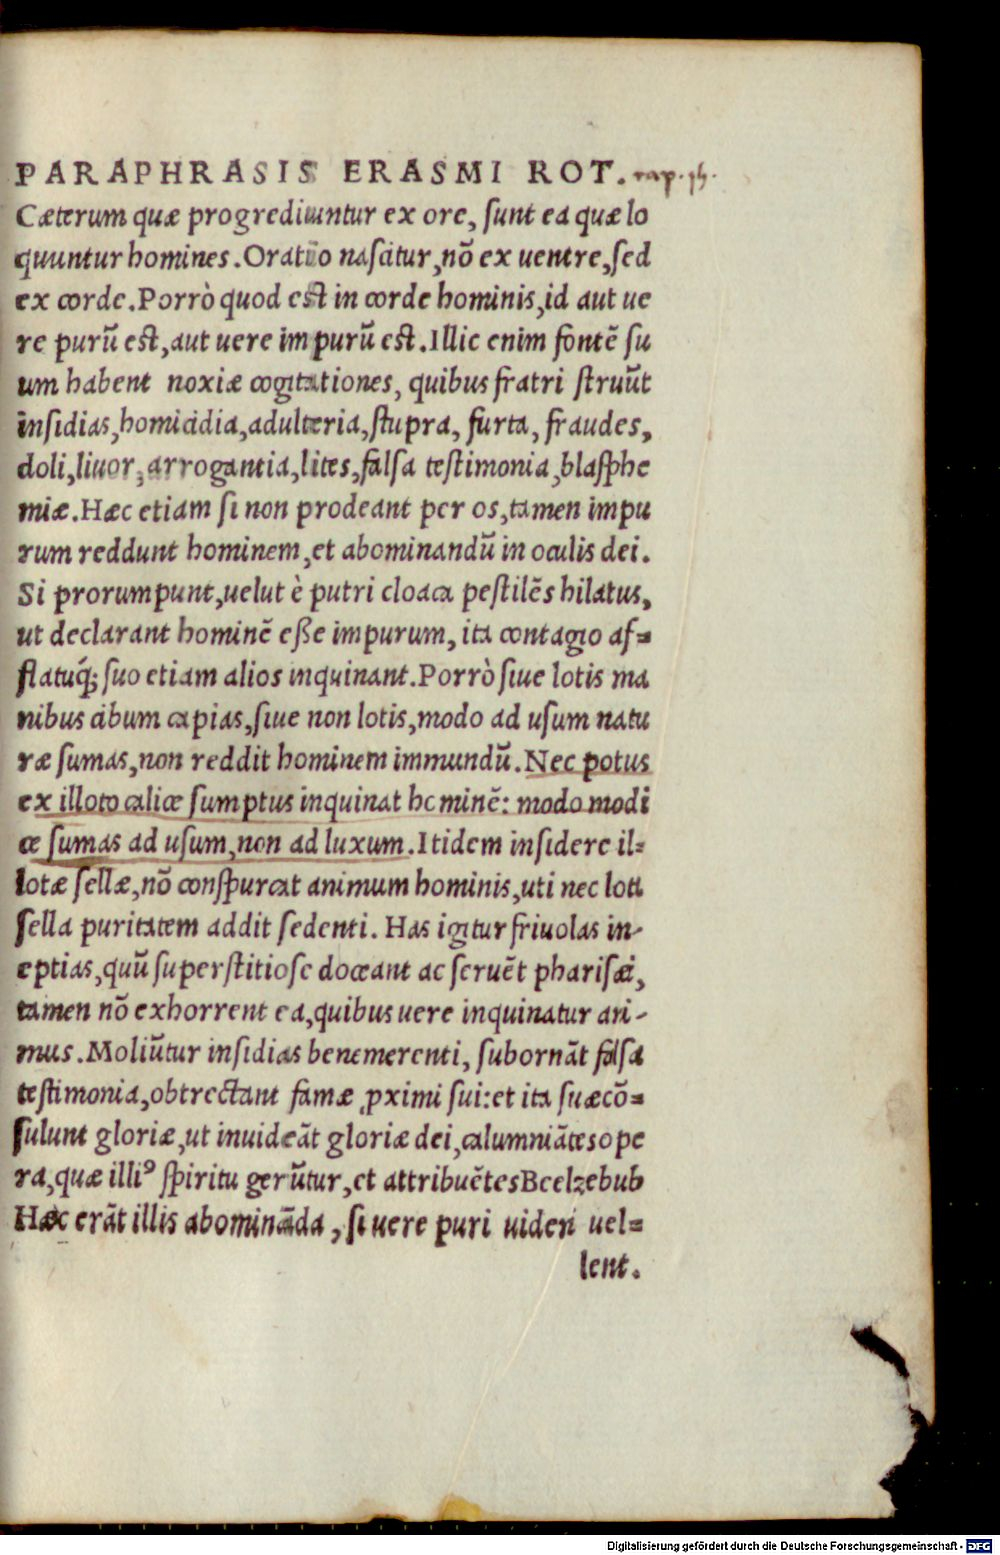 PARAPHRASIS ERASMI ROT. cap. 15.
Cæterum quæ progrediuntur ex ore, sunt ea quæ lo
quuntur homines. Oratio nascitur, nō ex uentre, sed
ex corde. Porrò quod est in corde hominis, id aut ue
re purū est, aut uere impurū est. Illic enim fontē su
um habent noxiæ cogitationes, quibus fratri struūt
insidias, homicidia, adulteria, stupra, furta, fraudes,
doli, liuor, arrogantia, lites, falsa testimonia, blasphe
miæ. Hæc etiam si non prodeant per os, tamen impu
rum reddunt hominem, et abominandū in oculis dei.
Si prorumpunt, uelut è putri cloaca pestilēs hilatus,
ut declarant hominē esse impurum, ita contagio af=
flatuq́; suo etiam alios inquinant. Porrò siue lotis ma
nibus cibum capias, siue non lotis, modo ad usum natu
ræ sumas, non reddit hominem immundū. Nec potus
ex illoto calice sumptus inquinat hominē: modo modi
ce sumas ad usum, non ad luxum. Itidem insidere il=
lotæ sellæ, nō conspurcat animum hominis, uti nec lota
sella puritatem addit sedenti. Has igitur friuolas in-
eptias, quū superstitiose doceant ac seruēt pharisæi,
tamen nō exhorrent ea, quibus uere inquinatur ani-
mus. Moliūtur insidias benemerenti, subornāt falsa
testimonia, obtrectant famæ ꝓximi sui: et ita suæ cō=
sulunt gloriæ, ut inuideāt gloriæ dei, calumniātes ope
ra, quæ illiꝰ spiritu gerūtur, et attribuētes Beelzebub
Hæc erāt illis abomināda, si uere puri uideri uel=
lent.
Digitalisierung gefördert durch die Deutsche Forschungsgemeinschaft - DFG